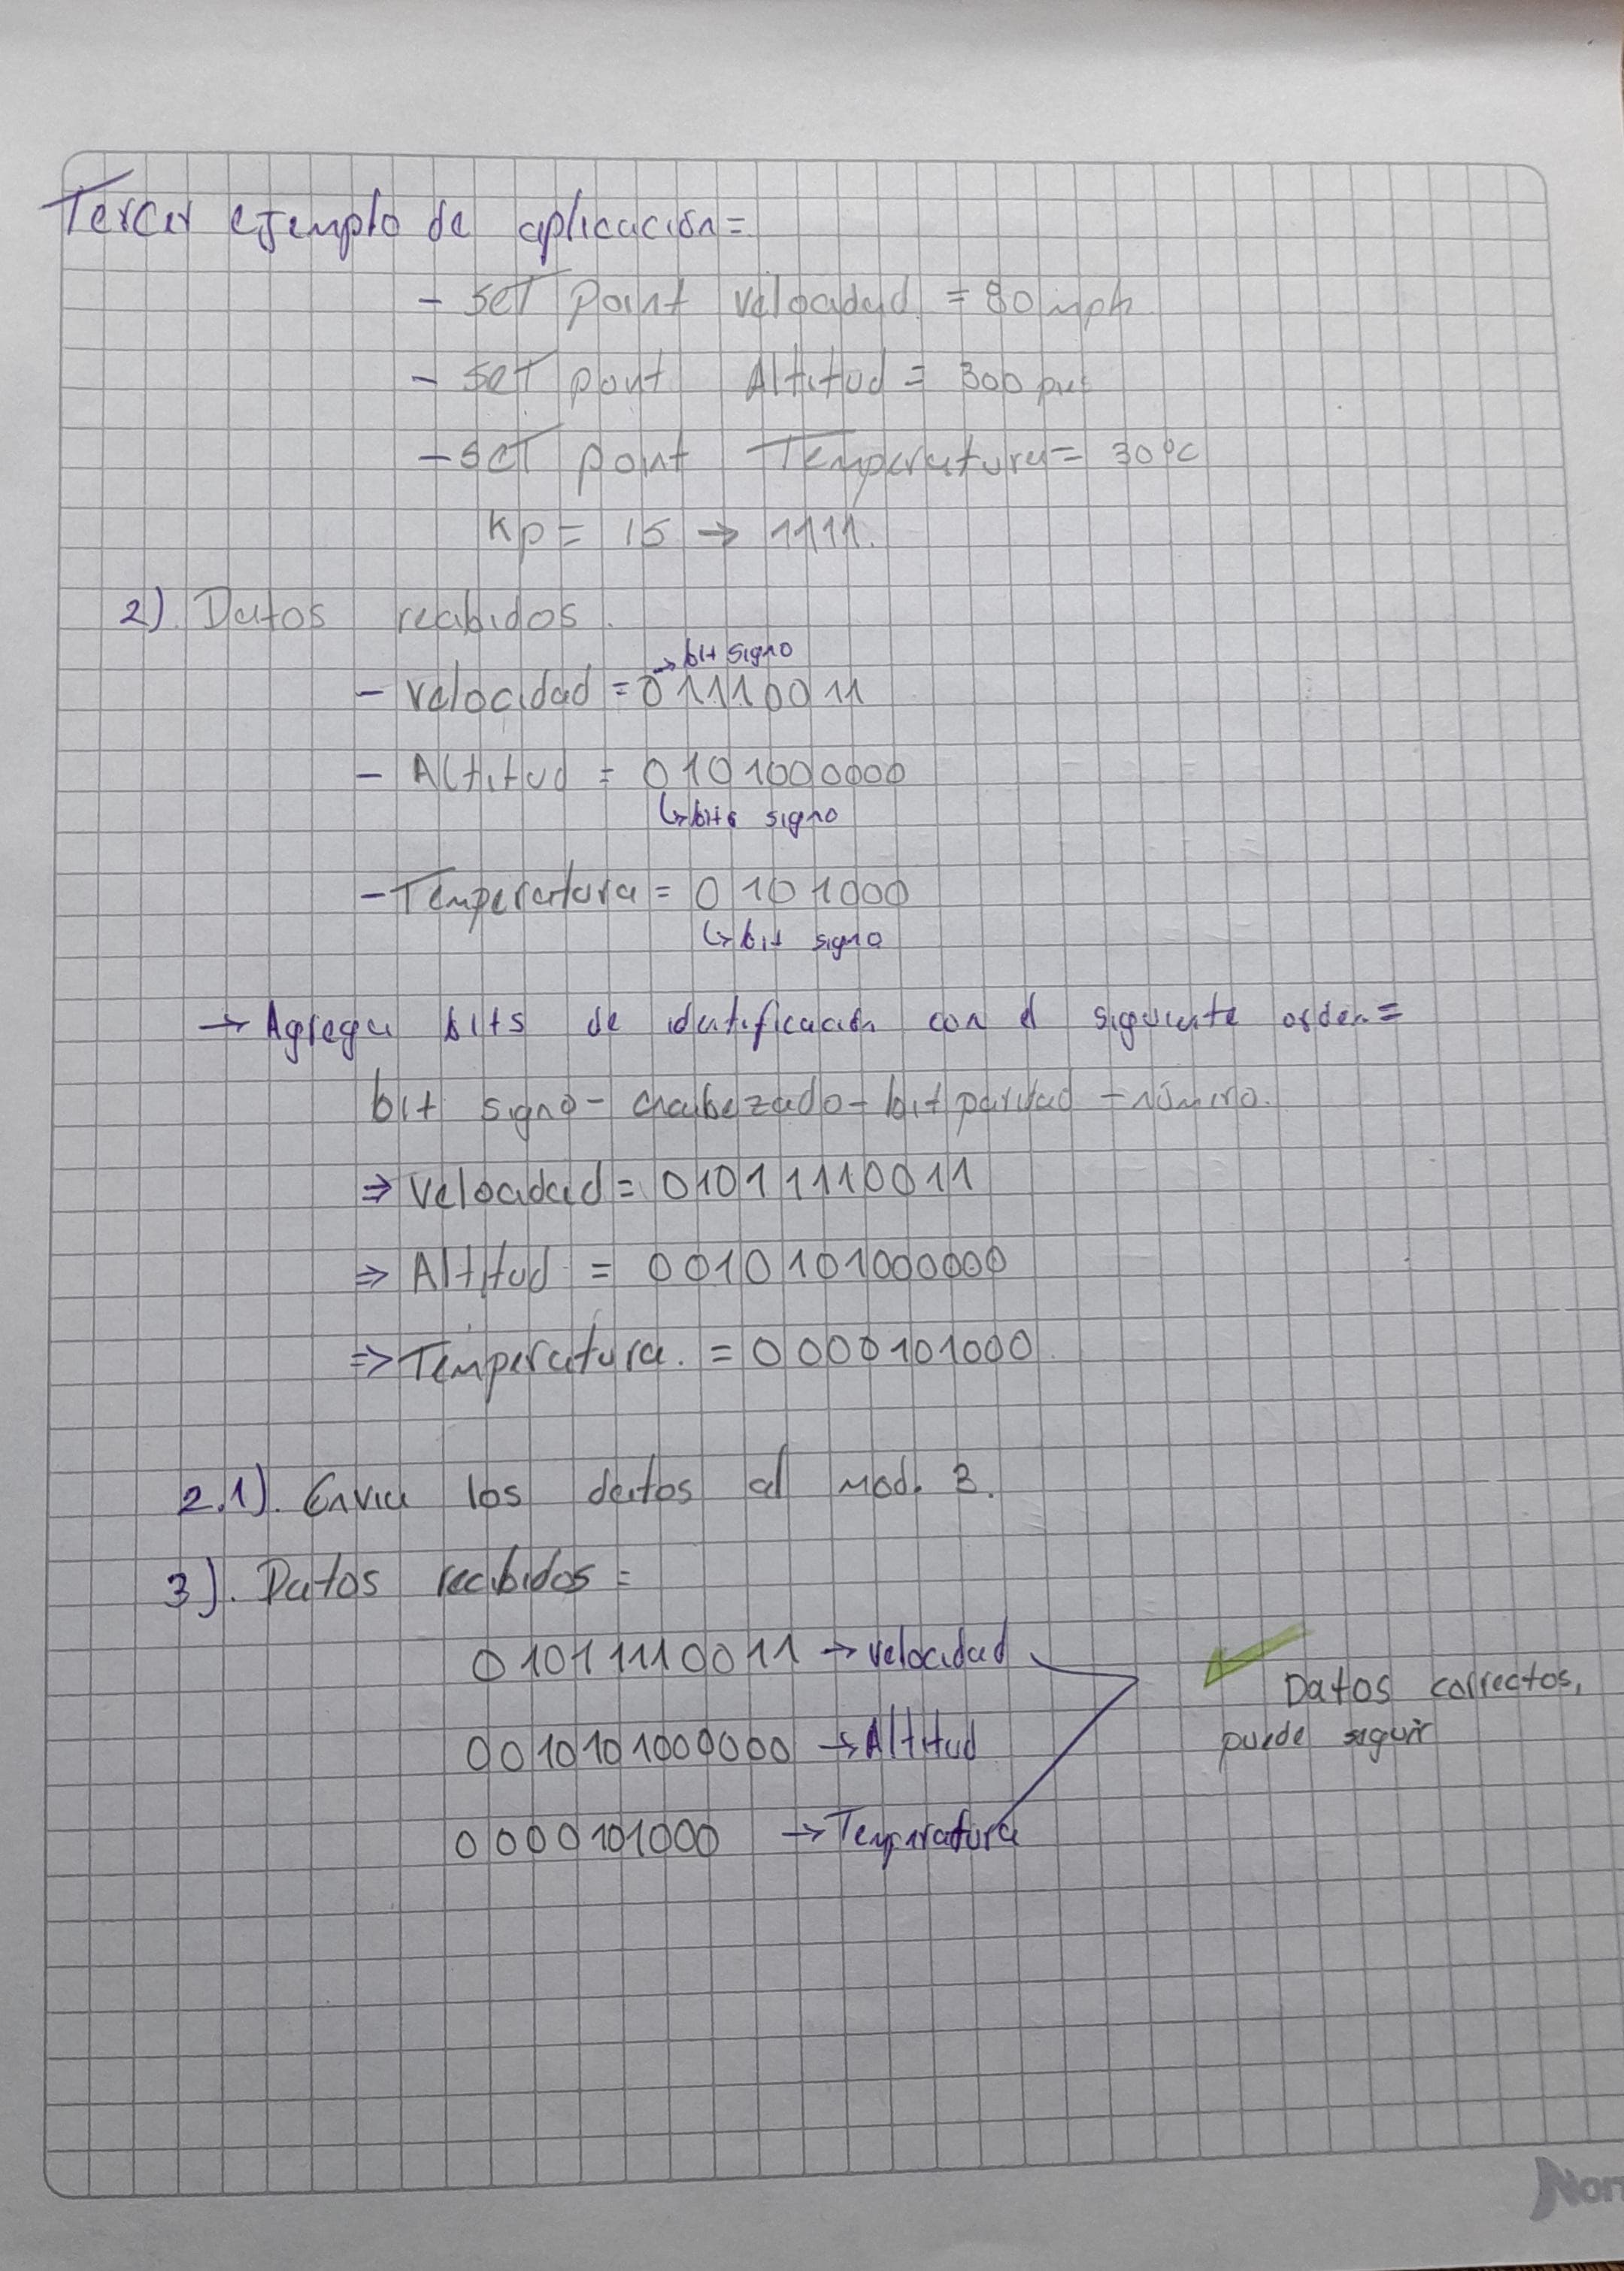 Tercer ejemplo de aplicación=
- set point velocidad = 80 mph
- set pount Altitud = 300 pies
- set point Temperatura= 30°C
Kp = 15 → 1111.
2). Datos recibidos.
→ bit signo
- velocidad = 011110011
- Altitud = 0101000000
↳ bits signo
- Temperatura = 0101000
↳ bit signo
→ Agrega bits de identificación con el siguiente orden=
bit signo - encabezado - bit paridad - número.
⇒ Velocidad = 010111110011
⇒ Altitud = 0010101000000
⇒ Temperatura. = 0000101000.
2.1). Envia los datos al mod. 3.
3). Datos recibidos =
010111110011 → velocidad
0010101000000 → Altitud
0000101000 → Temperatura
Datos correctos,
puede seguir
Nor